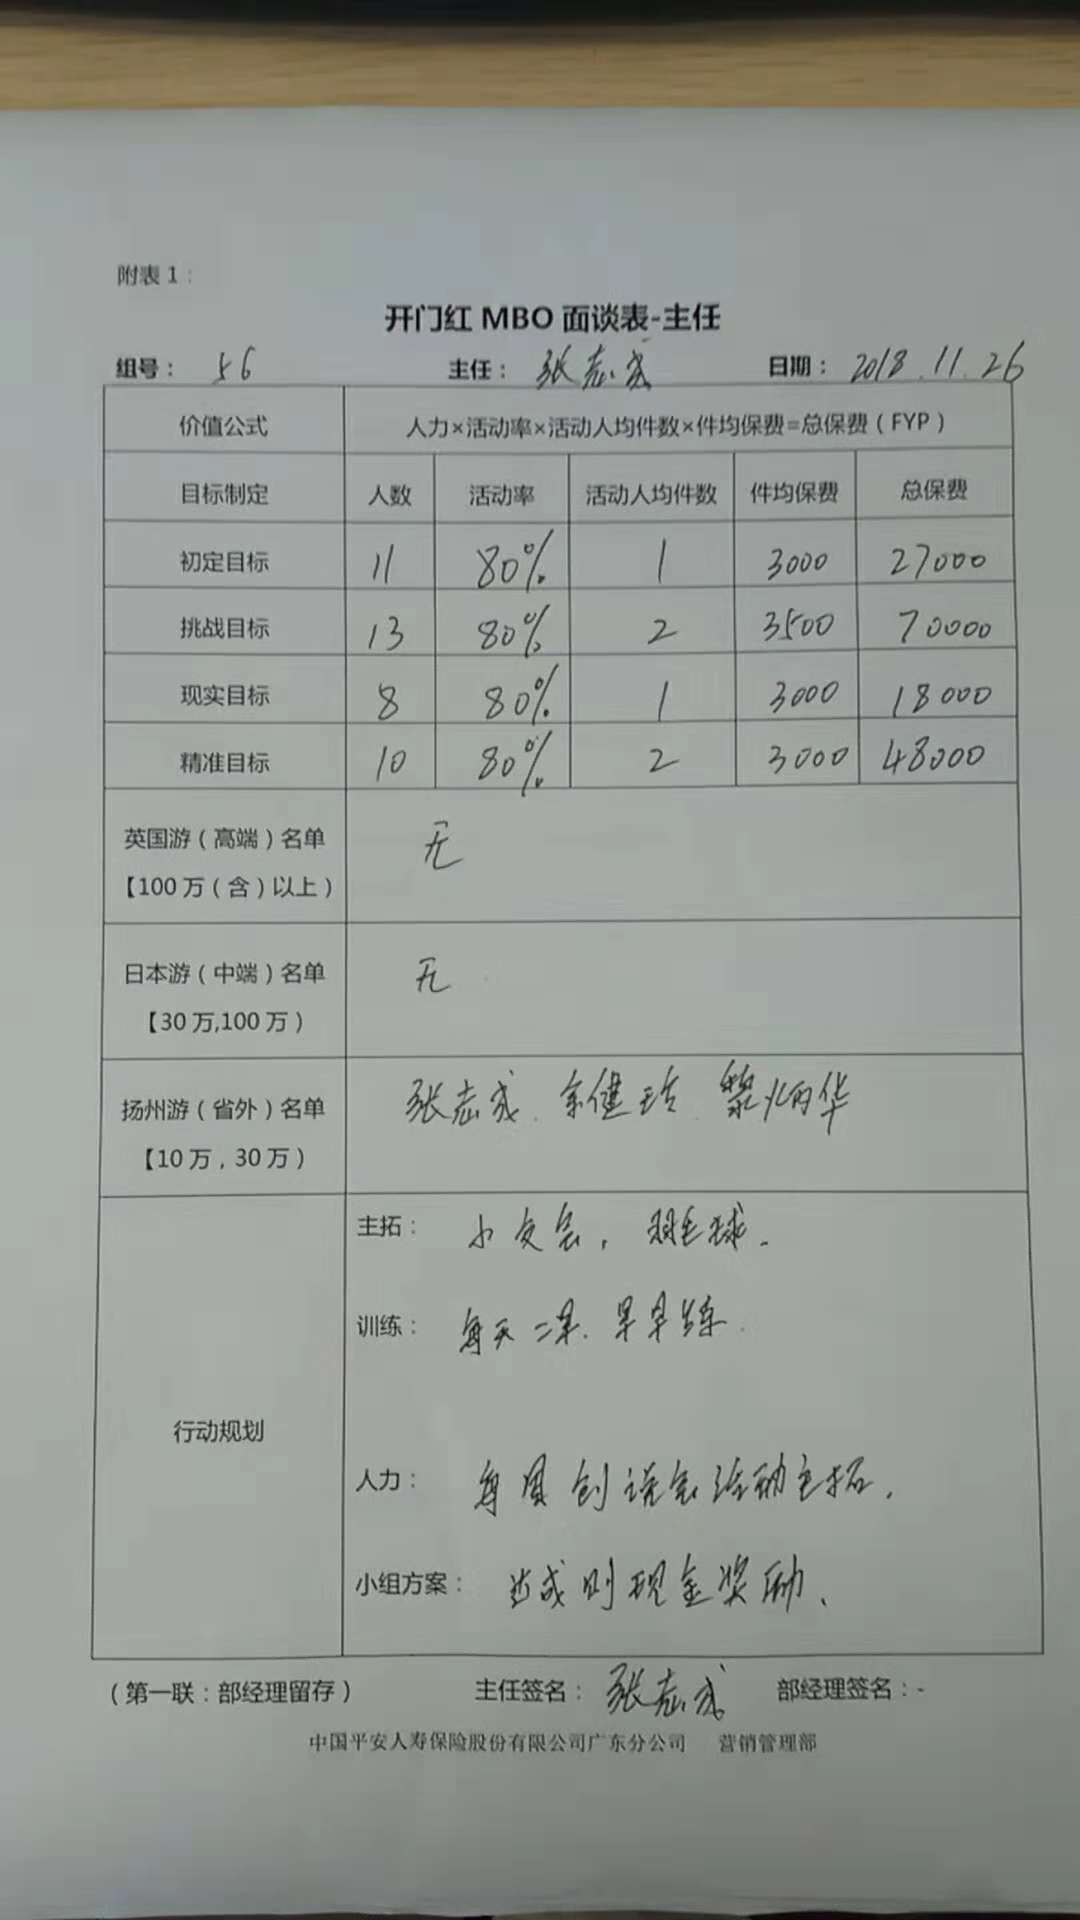 附表 1：
开门红 MBO 面谈表-主任
组号： 56 主任： 张志成 日期： 2018.11.26
价值公式 人力×活动率×活动人均件数×件均保费=总保费（FYP）
目标制定 人数 活动率 活动人均件数 件均保费 总保费
初定目标 11 80% 1 3000 27000
挑战目标 13 80% 2 3500 70000
现实目标 8 80% 1 3000 18000
精准目标 10 80% 2 3000 48000
英国游（高端）名单 无
【100 万（含）以上）
日本游（中端）名单 无
【30 万,100 万）
扬州游（省外）名单 张志成. 余健玲 黎炳华
【10 万，30 万）
行动规划
主拓： 小交会，羽毛球.
训练： 每天二早. 早早练.
人力： 每周创说会活动主拓.
小组方案： 达成则现金奖励.
（第一联：部经理留存） 主任签名： 张志成 部经理签名：-
中国平安人寿保险股份有限公司广东分公司 营销管理部